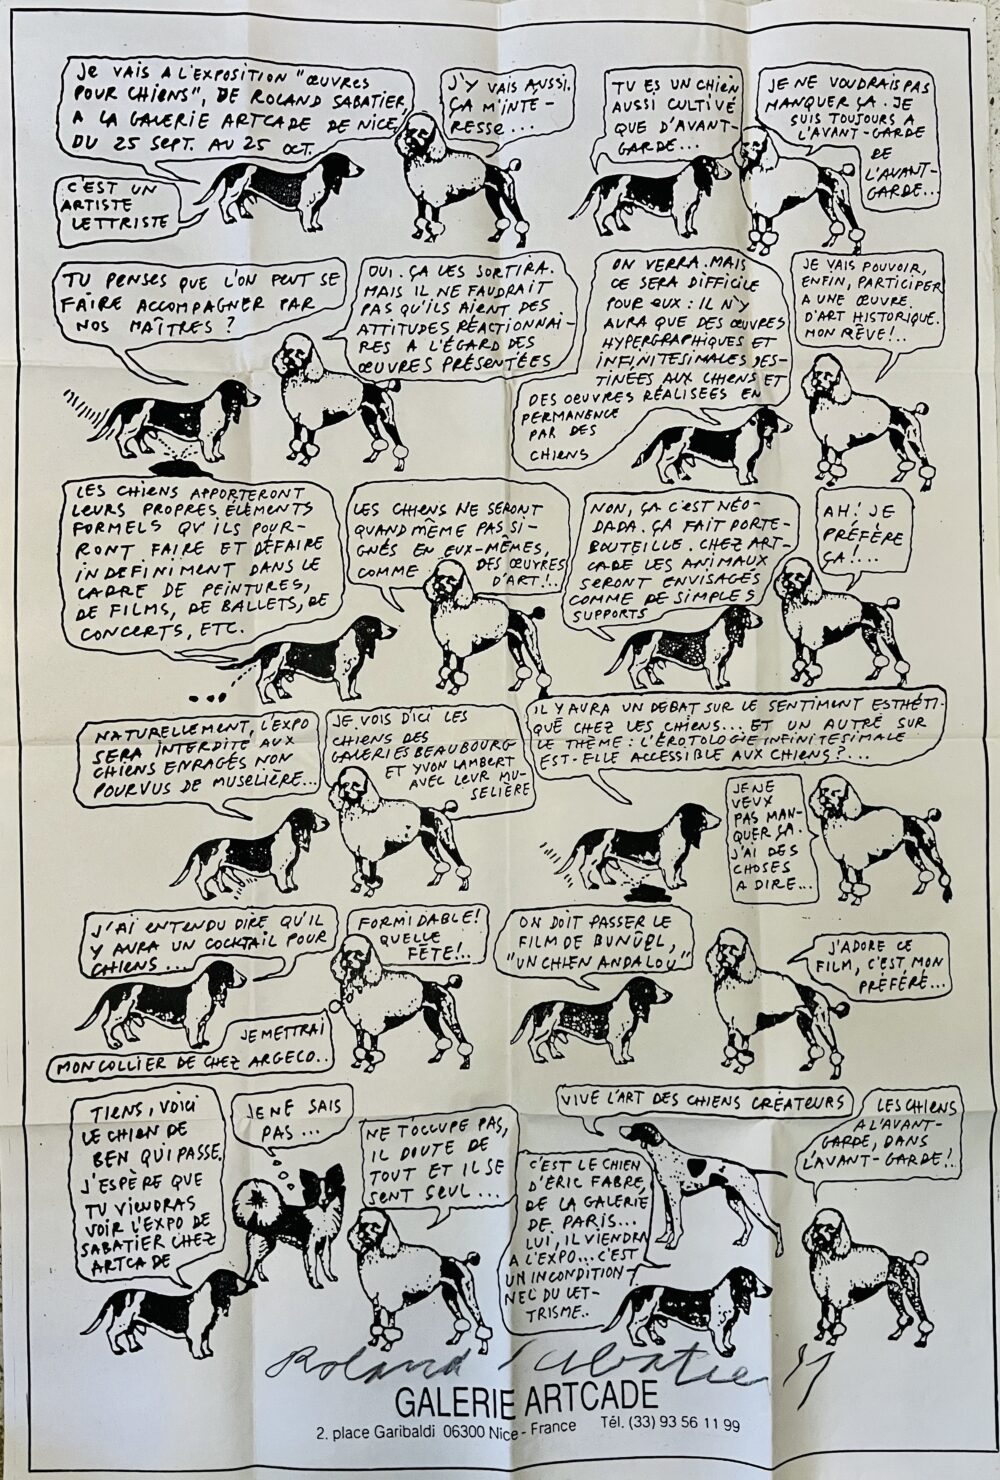 JE VAIS A L'EXPOSITION "ŒUVRES
POUR CHIENS", DE ROLAND SABATIER,
A LA GALERIE ARTCADE DE NICE,
DU 25 SEPT. AU 25 OCT.
C'EST UN
ARTISTE
LETTRISTE
J'Y VAIS AUSSI.
ÇA M'INTE-
RESSE...
TU ES UN CHIEN
AUSSI CULTIVÉ
QUE D'AVANT-
GARDE...
JE NE VOUDRAIS PAS
MANQUER ÇA. JE
SUIS TOUJOURS A
L'AVANT-GARDE
DE
L'AVANT-
GARDE...
TU PENSES QUE L'ON PEUT SE
FAIRE ACCOMPAGNER PAR
NOS MAÎTRES ?
OUI. ÇA LES SORTIRA.
MAIS IL NE FAUDRAIT
PAS QU'ILS AIENT DES
ATTITUDES RÉACTIONNAI-
RES A L'ÉGARD DES
ŒUVRES PRÉSENTÉES
ON VERRA. MAIS
CE SERA DIFFICILE
POUR EUX : IL N'Y
AURA QUE DES ŒUVRES
HYPERGRAPHIQUES ET
INFINITESIMALES DES-
TINÉES AUX CHIENS ET
DES OEUVRES RÉALISEES EN
PERMANENCE
PAR DES
CHIENS
JE VAIS POUVOIR,
ENFIN, PARTICIPER
A UNE ŒUVRE
D'ART HISTORIQUE.
MON RÊVE!...
LES CHIENS APPORTERONT
LEURS PROPRES ÉLÉMENTS
FORMELS QU'ILS POUR-
RONT FAIRE ET DÉFAIRE
INDEFINIMENT DANS LE
CADRE DE PEINTURES,
DE FILMS, DE BALLETS, DE
CONCERTS, ETC.
LES CHIENS NE SERONT
QUAND MÊME PAS SI-
GNÉS EN EUX-MÊMES,
COMME DES ŒUVRES
D'ART!..
NON, ÇA C'EST NÉO-
DADA. ÇA FAIT PORTE-
BOUTEILLE. CHEZ ART-
CADE LES ANIMAUX
SERONT ENVISAGÉS
COMME DE SIMPLES
SUPPORTS
AH! JE
PRÉFÈRE
ÇA!...
NATURELLEMENT, L'EXPO
SERA INTERDITE AUX
CHIENS ENRAGÉS NON
POURVUS DE MUSELIÈRE...
JE VOIS D'ICI LES
CHIENS DES
GALERIES BEAUBOURG
ET YVON LAMBERT
AVEC LEUR MU-
SELIÈRE
IL Y AURA UN DEBAT SUR LE SENTIMENT ESTHÉTI-
QUE CHEZ LES CHIENS... ET UN AUTRE SUR
LE THÈME : L'ÉROTOLOGIE INFINITESIMALE
EST-ELLE ACCESSIBLE AUX CHIENS?...
JE NE
VEUX
PAS MAN-
QUER ÇA.
J'AI DES
CHOSES
A DIRE...
J'AI ENTENDU DIRE QU'IL
Y AURA UN COCKTAIL POUR
CHIENS...
FORMIDABLE!
QUELLE
FÊTE!..
JE METTRAI
MON COLLIER DE CHEZ ARGECO..
ON DOIT PASSER LE
FILM DE BUNÛEL,
"UN CHIEN ANDALOU"
J'ADORE CE
FILM, C'EST MON
PRÉFÉRÉ...
TIENS, VOICI
LE CHIEN DE
BEN QUI PASSE.
J'ESPÈRE QUE
TU VIENDRAS
VOIR L'EXPO DE
SABATIER CHEZ
ARTCADE
JE NE SAIS
PAS...
NE T'OCCUPE PAS,
IL DOUTE DE
TOUT ET IL SE
SENT SEUL...
VIVE L'ART DES CHIENS CRÉATEURS
C'EST LE CHIEN
D'ÉRIC FABRE,
DE LA GALERIE
DE PARIS...
LUI, IL VIENDRA
A L'EXPO... C'EST
UN INCONDITION-
NEL DU LET-
TRISME..
LES CHIENS
A L'AVANT-
GARDE, DANS
L'AVANT-GARDE!..
Roland Sabatier
GALERIE ARTCADE
2. place Garibaldi 06300 Nice - France Tél. (33) 93 56 11 99